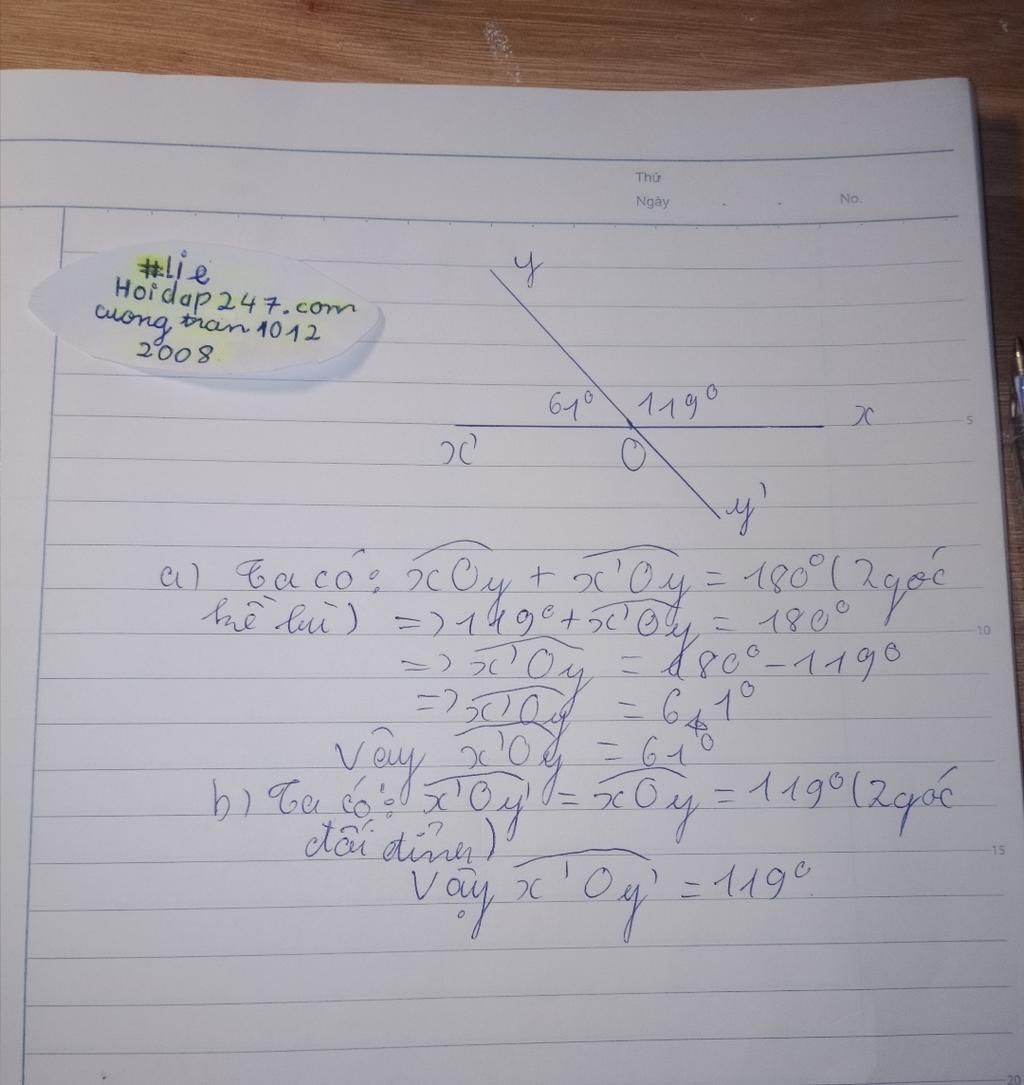 Thứ
Ngày . . No.
#Lie
Hoidap247.com
cuong tran 1012
2008
y
61° 119°
x' O x
y'
5
a) Ta có: xOy + x'Oy = 180° (2 góc
kề bù) => 119° + x'Oy = 180°
10
=> x'Oy = 180° - 119°
=> x'Oy = 61°
Vây x'Oy = 61°
b) Ta có: x'Oy' = xOy = 119° (2 góc
đối đỉnh)
15
Vậy x'Oy' = 119°
20